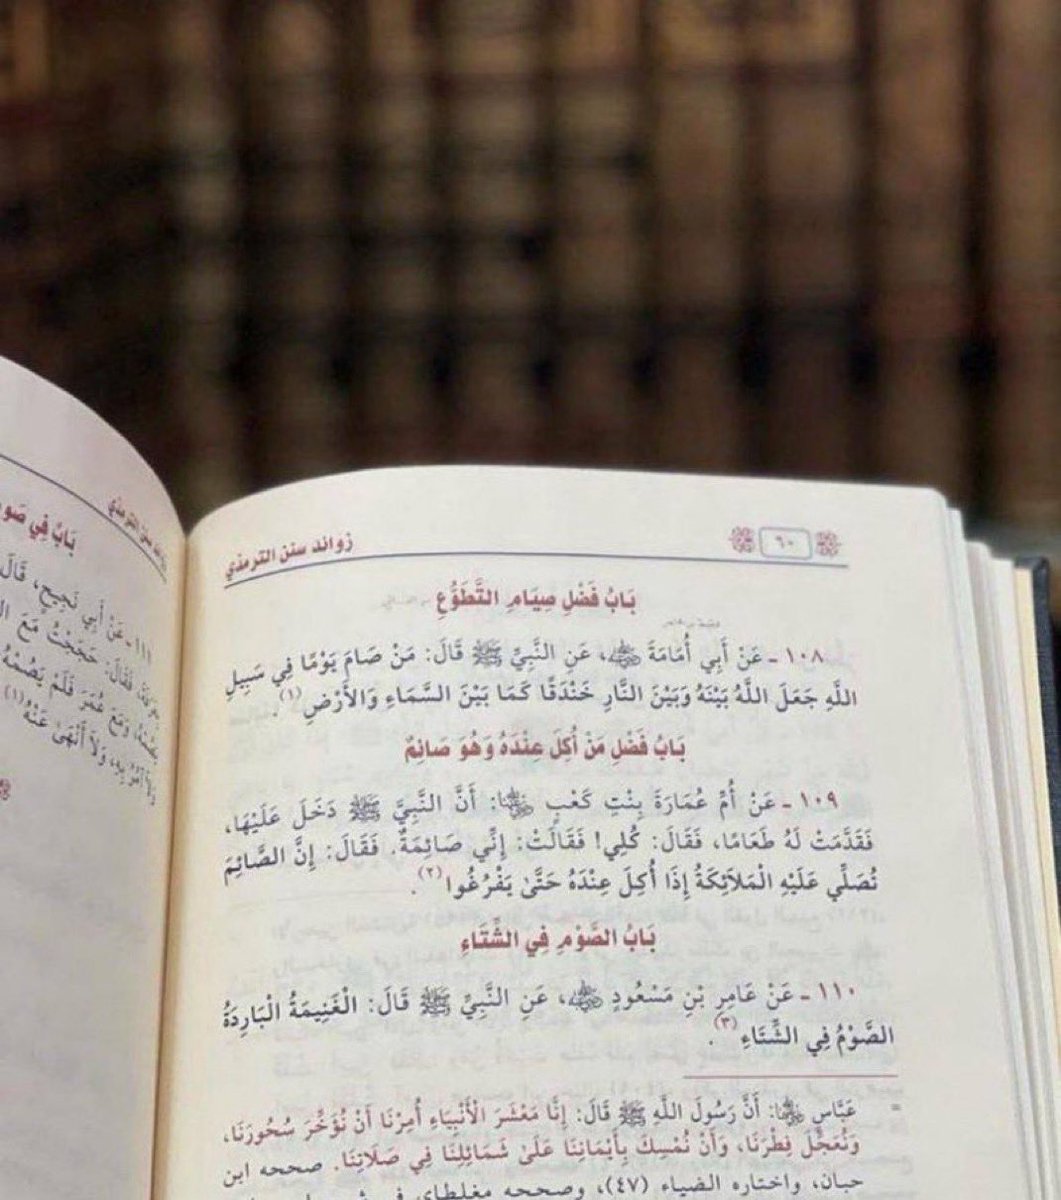 ٦٠
زوائد سنن الترمذي
بَابُ فَضْلِ صِيَامِ التَّطَوُّعِ
١٠٨ - عَنْ أَبِي أُمَامَةَ رضي الله عنه، عَنِ النَّبِيِّ ﷺ قَالَ: مَنْ صَامَ يَوْمًا فِي سَبِيلِ
اللَّهِ جَعَلَ اللَّهُ بَيْنَهُ وَبَيْنَ النَّارِ خَنْدَقًا كَمَا بَيْنَ السَّمَاءِ وَالأَرْضِ (١).
بَابُ فَضْلِ مَنْ أُكِلَ عِنْدَهُ وَهُوَ صَائِمٌ
١٠٩ - عَنْ أُمِّ عُمَارَةَ بِنْتِ كَعْبٍ رضي الله عنها: أَنَّ النَّبِيَّ ﷺ دَخَلَ عَلَيْهَا،
فَقَدَّمَتْ لَهُ طَعَامًا، فَقَالَ: كُلِي! فَقَالَتْ: إِنِّي صَائِمَةٌ. فَقَالَ: إِنَّ الصَّائِمَ
تُصَلِّي عَلَيْهِ الْمَلَائِكَةُ إِذَا أُكِلَ عِنْدَهُ حَتَّىٰ يَفْرُغُوا (٢).
بَابُ الصَّوْمِ فِي الشِّتَاءِ
١١٠ - عَنْ عَامِرِ بْنِ مَسْعُودٍ رضي الله عنه، عَنِ النَّبِيِّ ﷺ قَالَ: الْغَنِيمَةُ الْبَارِدَةُ
الصَّوْمُ فِي الشِّتَاءِ (٣).
= عَبَّاسٍ رضي الله عنهما: أَنَّ رَسُولَ اللَّهِ ﷺ قَالَ: إِنَّا مَعْشَرَ الْأَنْبِيَاءِ أُمِرْنَا أَنْ نُؤَخِّرَ سُحُورَنَا،
وَنُعَجِّلَ فِطْرَنَا، وَأَنْ نُمْسِكَ بِأَيْمَانِنَا عَلَىٰ شَمَائِلِنَا فِي صَلَاتِنَا. صححه ابن
حبان، واختاره الضياء (٤٧)، وصححه مغلطاي في
سنن الترمذي
بَابٌ فِي
١١١ - عَنْ أَبِي نَجِيحٍ، قَالَ
فَقَالَ: حَجَجْتُ مَعَ
وَمَعَ عُمَرَ فَلَمْ يَصُمْهُ
وَلَا آمُرُ بِهِ، وَلَا أَنْهَىٰ عَنْهُ (١)